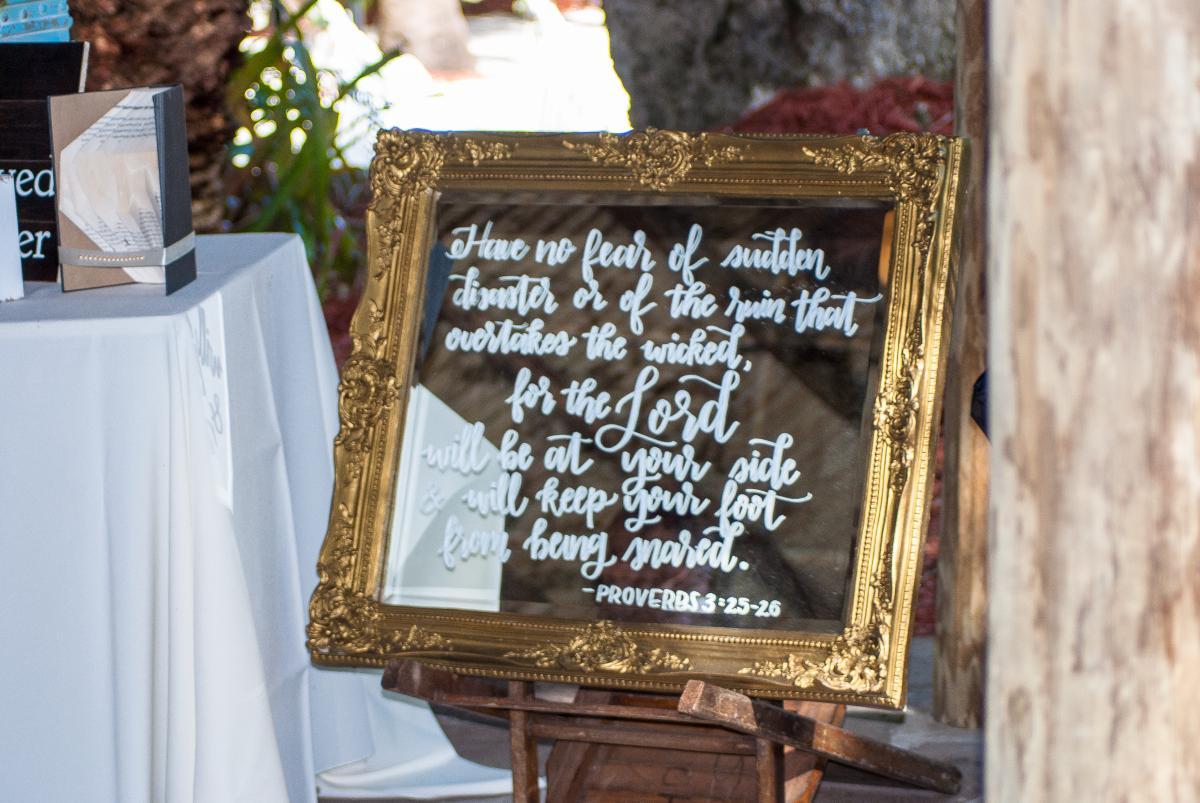 Have no fear of sudden
disaster or of the ruin that
overtakes the wicked,
for the Lord
will be at your side
& will keep your foot
from being snared.
-PROVERBS 3:25-26